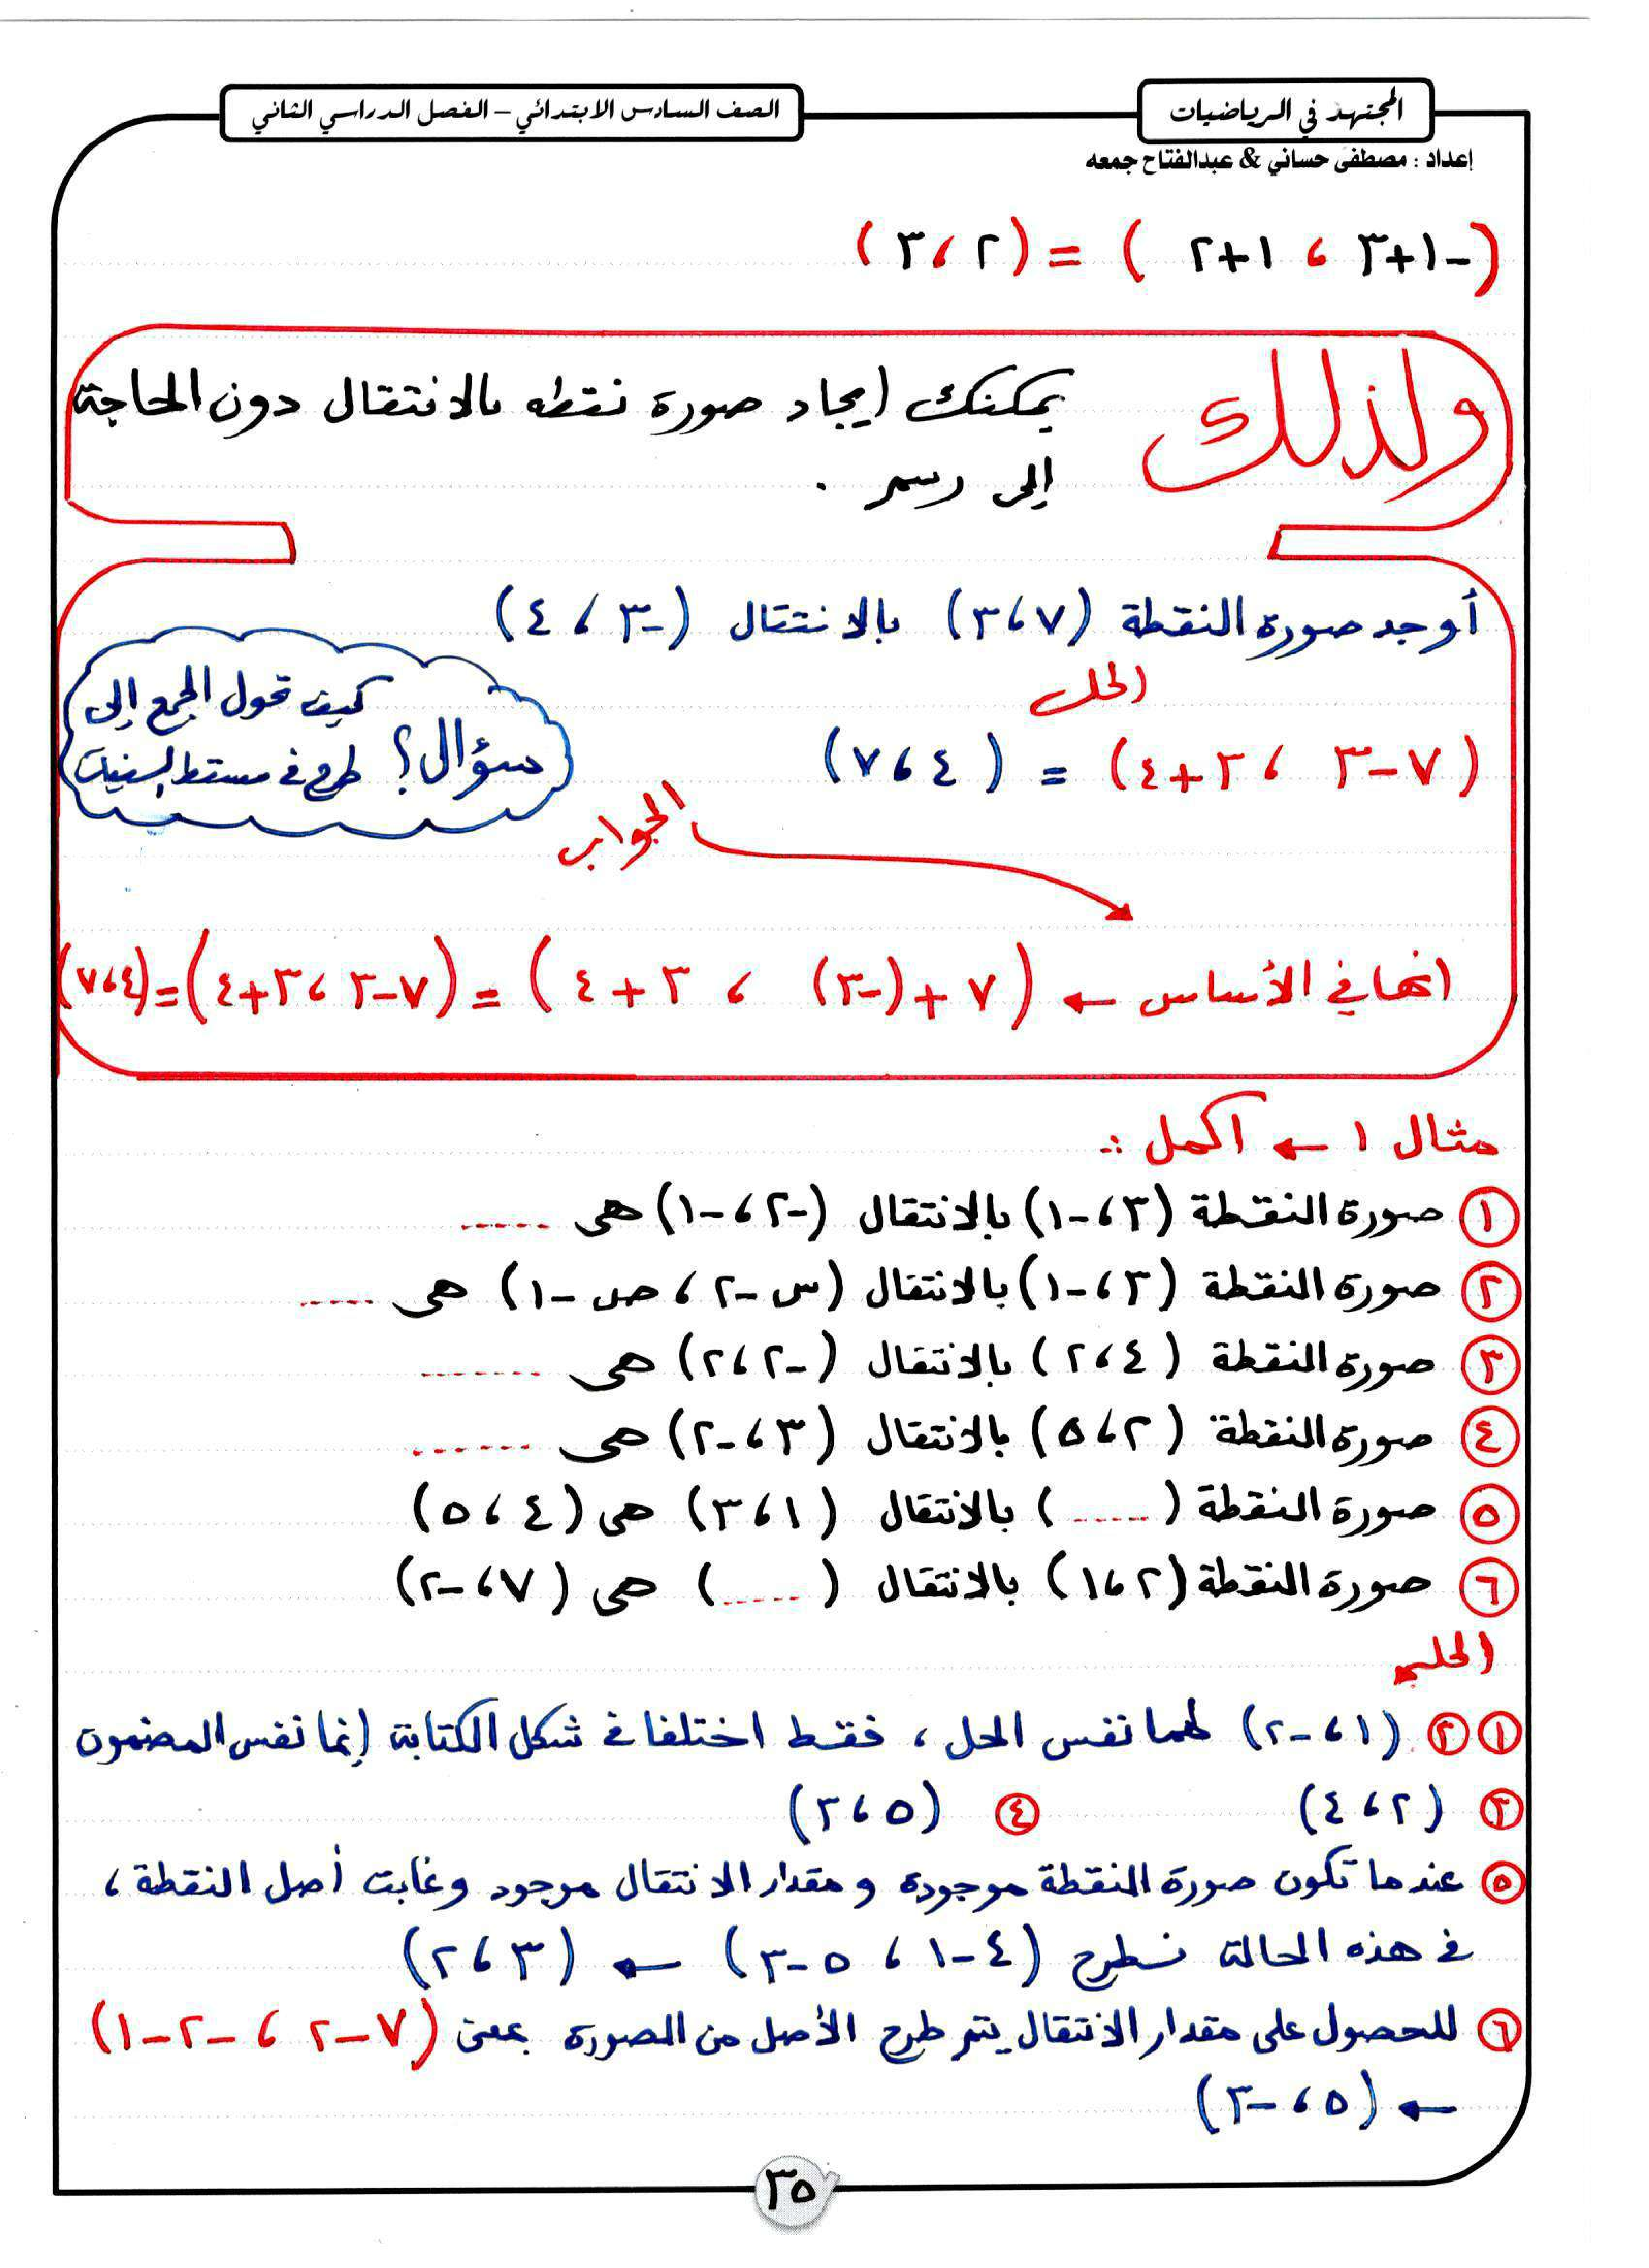 المجتهد في الرياضيات
الصف السادس الابتدائي – الفصل الدراسي الثاني
إعداد : مصطفى حساني & عبدالفتاح جمعه
(-١+٣ ، ١+٢) = (٢ ، ٣)
ولذلك يمكنك إيجاد صورة نقطه بالانتقال دون الحاجة
إلى رسم .
أوجد صورة النقطة (٧ ، ٣) بالانتقال (-٣ ، ٤)
الحل
(٧-٣ ، ٣+٤) = (٤ ، ٧)
سؤال؟ كيف تحول الجمع إلى
طرح في مسقط السينات
الجواب
انها في الأساس ← (٧ + (-٣) ، ٣ + ٤) = (٧-٣ ، ٣+٤) = (٤ ، ٧)
مثال ١ ← اكمل :-
١ صورة النقطة (٣ ، -١) بالانتقال (-٢ ، -١) هى .....
٢ صورة النقطة (٣ ، -١) بالانتقال (س -٢ ، ص -١) هى .....
٣ صورة النقطة (٤ ، ٢) بالانتقال (-٢ ، ٢) هى .......
٤ صورة النقطة (٢ ، ٥) بالانتقال (٣ ، -٢) هى .......
٥ صورة النقطة (.....) بالانتقال (١ ، ٣) هى (٤ ، ٥)
٦ صورة النقطة (٢ ، ١) بالانتقال (.....) هى (٧ ، -٢)
الحل
١ ٢ (١ ، -٢) لهما نفس الحل ، فقط اختلفا في شكل الكتابة إنما نفس المضمون
٣ (٢ ، ٤) ٤ (٥ ، ٣)
٥ عندما تكون صورة النقطة موجودة و مقدار الانتقال موجود وغابت أصل النقطة ،
في هذه الحالة نطرح (٤-١ ، ٥-٣) ← (٣ ، ٢)
٦ للحصول على مقدار الانتقال يتم طرح الأصل من الصورة بمعنى (٧-٢ ، -٢-١)
← (٥ ، -٣)
٣٥